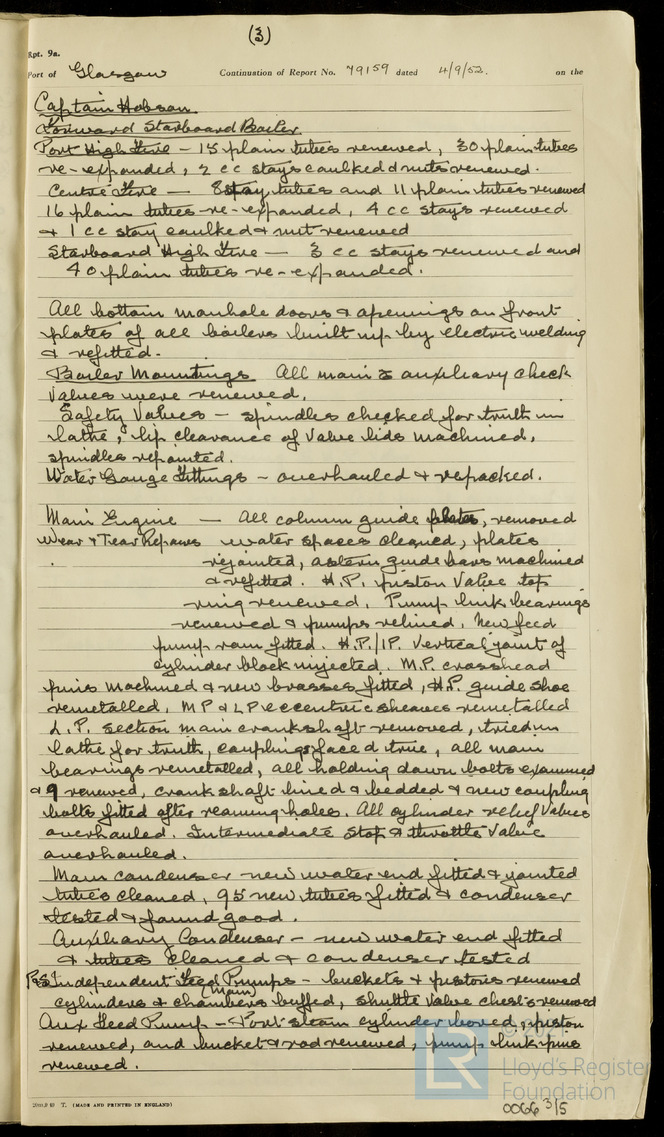 (3)
Rpt. 9a.
Port of Glasgow Continuation of Report No. 79159 dated 4/9/52. on the
Captain Hobson
Forward Starboard Boiler
Port High Fire – 15 plain tubes renewed, 30 plain tubes
re-expanded, 2 cc stays caulked & nuts renewed.
Centre Fire – 8 stay tubes and 11 plain tubes renewed
16 plain tubes re-expanded, 4 cc stays renewed
& 1 cc stay caulked & nut renewed
Starboard High Fire – 3 cc stays renewed and
40 plain tubes re-expanded.
All bottom manhole doors & openings on front
plates of all boilers built up by electric welding
& refitted.
Boiler Mountings All main & auxiliary check
valves were renewed.
Safety Valves – spindles checked for truth in
lathe, lip clearance of valve lids machined,
spindles repointed.
Water Gauge Fittings – overhauled & repacked.
Main Engine – All column guide plates, removed
Wear & Tear Repairs water spaces cleaned, plates
rejointed, astern guide bars machined
& refitted. H.P. piston valve top
ring renewed. Pump link bearings
renewed & pumps relined. New feed
pump ram fitted. H.P./I.P. vertical joint of
cylinder block injected. M.P. crosshead
pins machined & new brasses fitted, H.P. guide shoe
remetalled, MP & LP eccentric sheaves remetalled
L.P. section main crankshaft removed, tried in
lathe for truth, couplings faced true, all main
bearings remetalled, all holding down bolts examined
& 9 renewed, crankshaft lined & bedded & new coupling
bolts fitted after reaming holes. All cylinder relief valves
overhauled. Intermediate stop & throttle valve
overhauled.
Main condenser new water end fitted & jointed
tubes cleaned, 95 new tubes fitted & condenser
tested & found good.
Auxiliary Condenser – new water end fitted
& tubes cleaned & condenser tested
P&S Independent Feed Pumps – buckets & pistons renewed
(Main)
cylinders & chambers buffed, shuttle valve chests renewed
Aux Feed Pump – Port steam cylinder bored, piston
renewed, and bucket & rod renewed, pump link pins
renewed.
© 202
LR
Lloyd's Register
Foundation
T. (MADE AND PRINTED IN ENGLAND)
0066 3/5